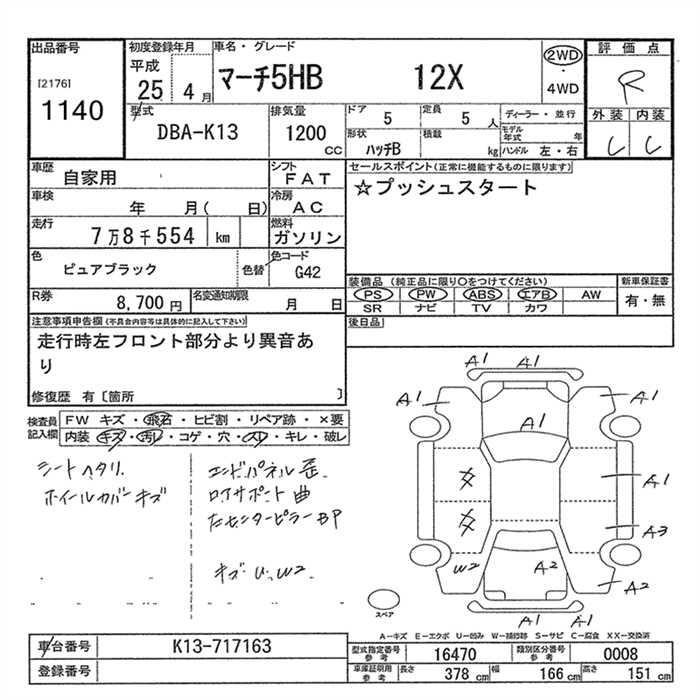 出品番号 初度登録年月 車名・グレード 2WD 評価点
[2176] 平成 マーチ5HB 12X ・ R
1140 25 4月 4WD
型式 排気量 ドア 定員 ディーラー・並行 外装 内装
DBA-K13 1200 CC 5 5人 モデル年式 年 C C
形状 積載
ハッチB kg ハンドル 左・右
車歴 シフト セールスポイント(正常に機能するものに限ります)
自家用 FAT ☆プッシュスタート
車検 冷房
年 月( 日) AC
走行 燃料
7万8千554 km ガソリン
色 色コード
ピュアブラック 色替 G42
装備品 (純正品に限り○をつけてください) 新車保証書
R券 名変通知期限 PS PW ABS エアB AW 有・無
8,700円 月 日 SR ナビ TV カワ
注意事項申告欄(不具合内容等は具体的に記入して下さい) 後日品
走行時左フロント部分より異音あ
り
修復歴 有〔箇所 〕
検査員 FW キズ・飛石・ヒビ割・リペア跡・×要
記入欄 内装・キズ・汚レ・コゲ・穴・スレ・キレ・破レ
シートヘタリ エンドパネル歪
ホイールカバーキズ ロアサポート曲
センターピラーBP
キズ・U、W2
A1
A1 A1 A1
A1
A3
W2 A2 A2
A1 A1
スペア
A-キズ E-エクボ U-凹み W-補修跡 S-サビ C-腐食 XX-交換済
車台番号 K13-717163 型式指定番号 参考 16470 類別区分番号 参考 0008
登録番号 車庫証明用 参考 長さ 378cm 幅 166cm 高さ 151cm